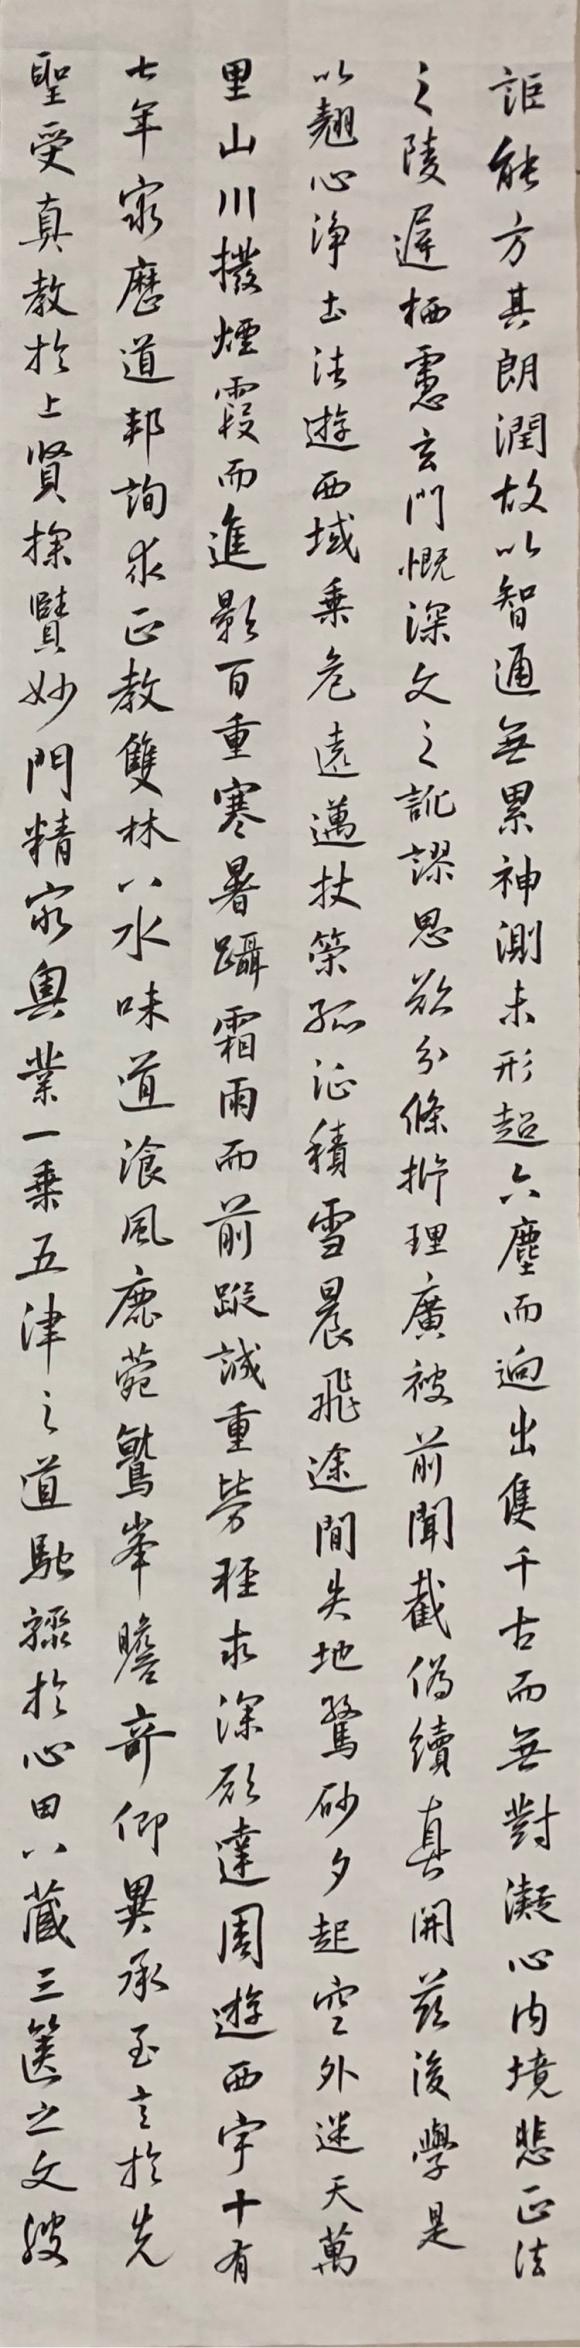 詎能方其朗潤故以智通無累神測未形超六塵而迥出隻千古而無對凝心內境悲正法
之陵遲栖慮玄門慨深文之訛謬思欲分條析理廣被前聞截偽續真開茲後學是
以翹心淨土法遊西域乗危遠邁杖策孤征積雪晨飛途間失地驚砂夕起空外迷天萬
里山川撥煙霞而進影百重寒暑躡霜雨而前蹤誠重勞軽求深願達周遊西宇十有
七年窮歷道邦詢求正教雙林八水味道飡風鹿菀鷲峯瞻奇仰異承至言於先
聖受真教於上賢探賾妙門精窮奧業一乗五津之道馳驟於心田八藏三篋之文波